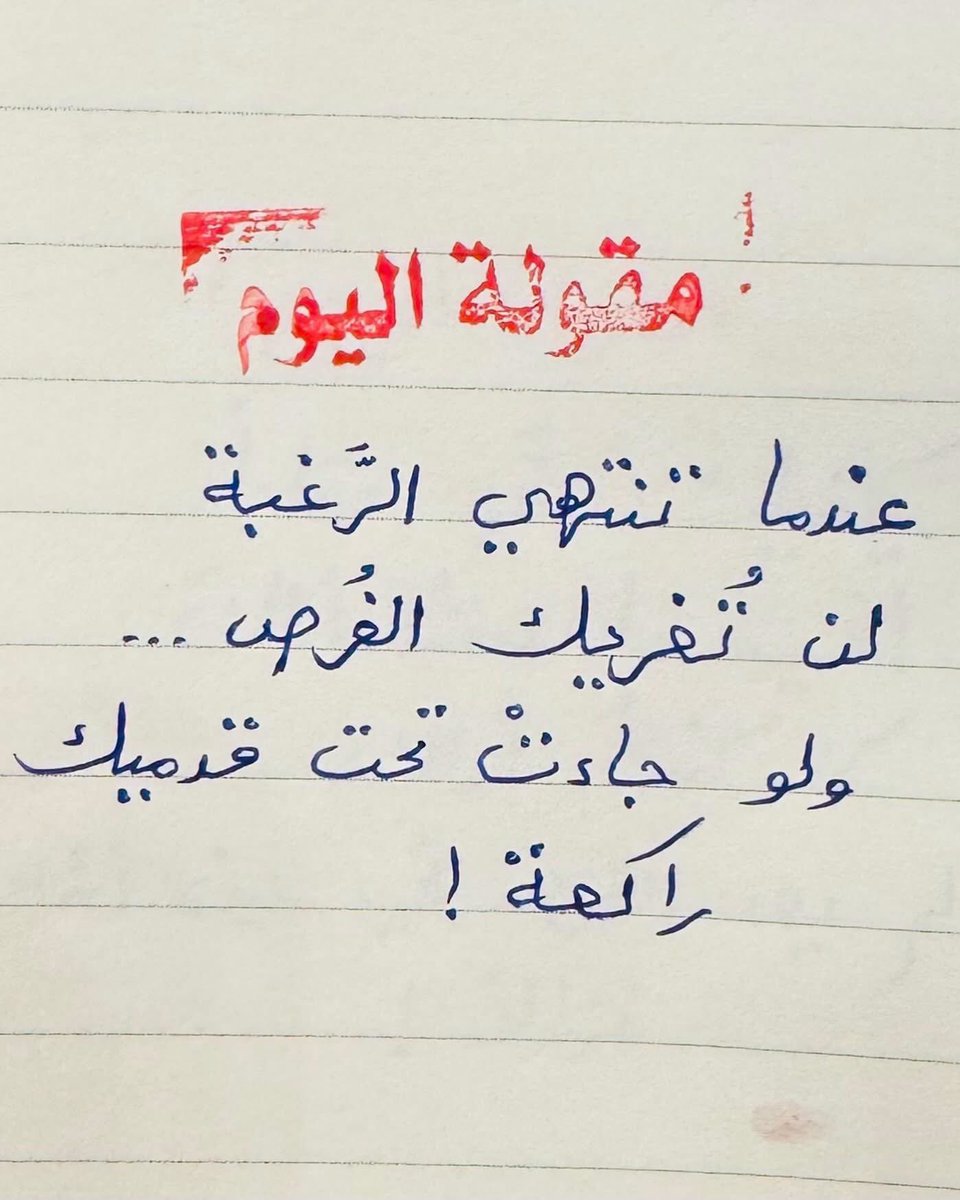 مقولة اليوم
عندما تنتهي الرَّغبة
لن تُغريك الفُرص ...
ولو جاءتْ تحت قدميك
راكعة !